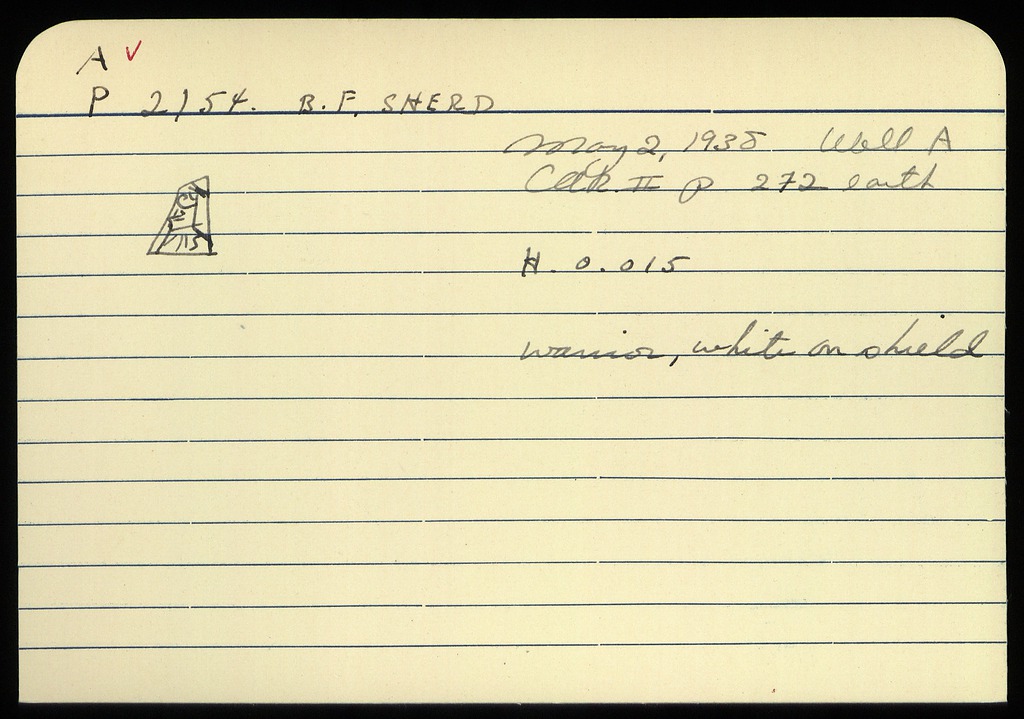 A ✓
P 2154. B.F. SHERD
May 2, 1935 Well A
II p 272 earth
H. 0.015
warrior, white on shield